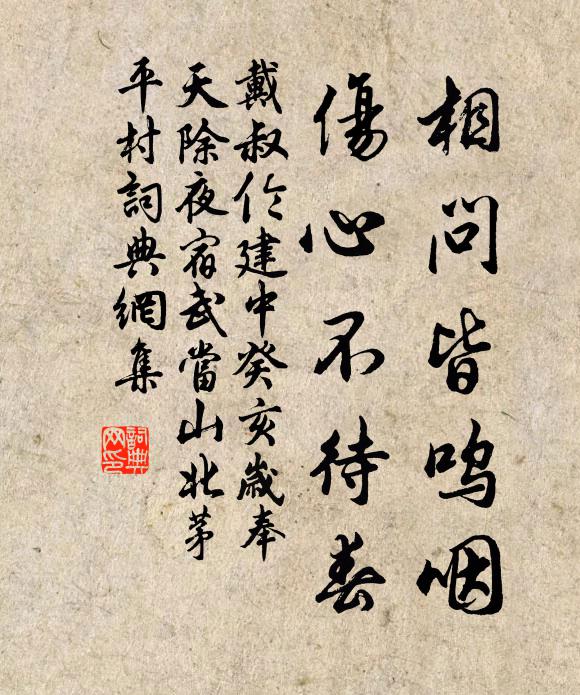 相問皆嗚咽
傷心不待春
戴叔伦建中癸亥歲奉
天除夜宿武當山北茅
平村詞典網集
詞典
网印